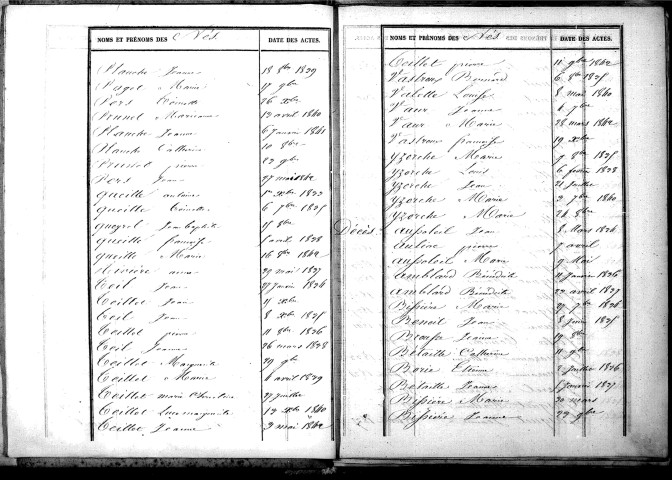 NOMS ET PRÉNOMS DES Nés DATE DES ACTES.
Planche Jeanne 18 8bre 1839
Pagot Marie 17 9bre
Pers Toinette 26 Xbre
Prunet Marianne 12 avril 1840
Planche Jeanne 6 Janvier 1841
Planche Catherine 10 8bre
pierre 22 9bre
Pers Jean 27 mai 1842
queille antoine 1er Xbre 1822
queille Toinette 6 7bre 1825
queyrel Jean baptiste 15 8bre
queille françoise 5 avril 1828
queille Marie 16 8bre 1842
Rivière anne 29 mai 1827
Teil Jean 27 Janvier 1824
Teillet Jean 11 Xbre
Teil Jean 8 Xbre 1825
Teillet pierre 11 8bre 1826
Teil Jeanne 26 mars 1828
Teillet Marguerite 29 9bre
Teillet Marie 1 avril 1829
Teillet marie Christine 27 Juillet
Teillet Luce marguerite 12 Xbre 1840
Teillet Jeanne 3 mai 1842
NOMS ET PRÉNOMS DES Nés DATE DES ACTES.
Teillet pierre 11 9bre 1842
Vastroux Bernard 6 8bre 1825
Valette Louise 8 mai 1840
Vaur Jeanne 4 7bre
Vaur Marie 28 mars 1842
Vastroux françoise 19 Xbre
yzorche Marie 7 8bre 1825
yzorche Louis 6 février 1828
yzorche Jean 21 Juillet
yzorche Marie 2 7bre 1840
yzorche Marie 24 8bre
Décès Jean 8 Mars 1824
pierre 7 avril
Marie 9 Mai
amblard Bénédicte 11 Janvier 1826
amblard Bénédicte 22 avril 1827
Bessière Marie 27 7bre 1824
Benoit Jean 8 Janvier 1825
Jeanne 19 8bre
Bataille Catherine 11 9bre
Borie Etienne 2 Juillet 1826
Bataille Jeanne 1 Janvier 1827
Bessière Marie 30 mars
Bessière Jeanne 22 9bre